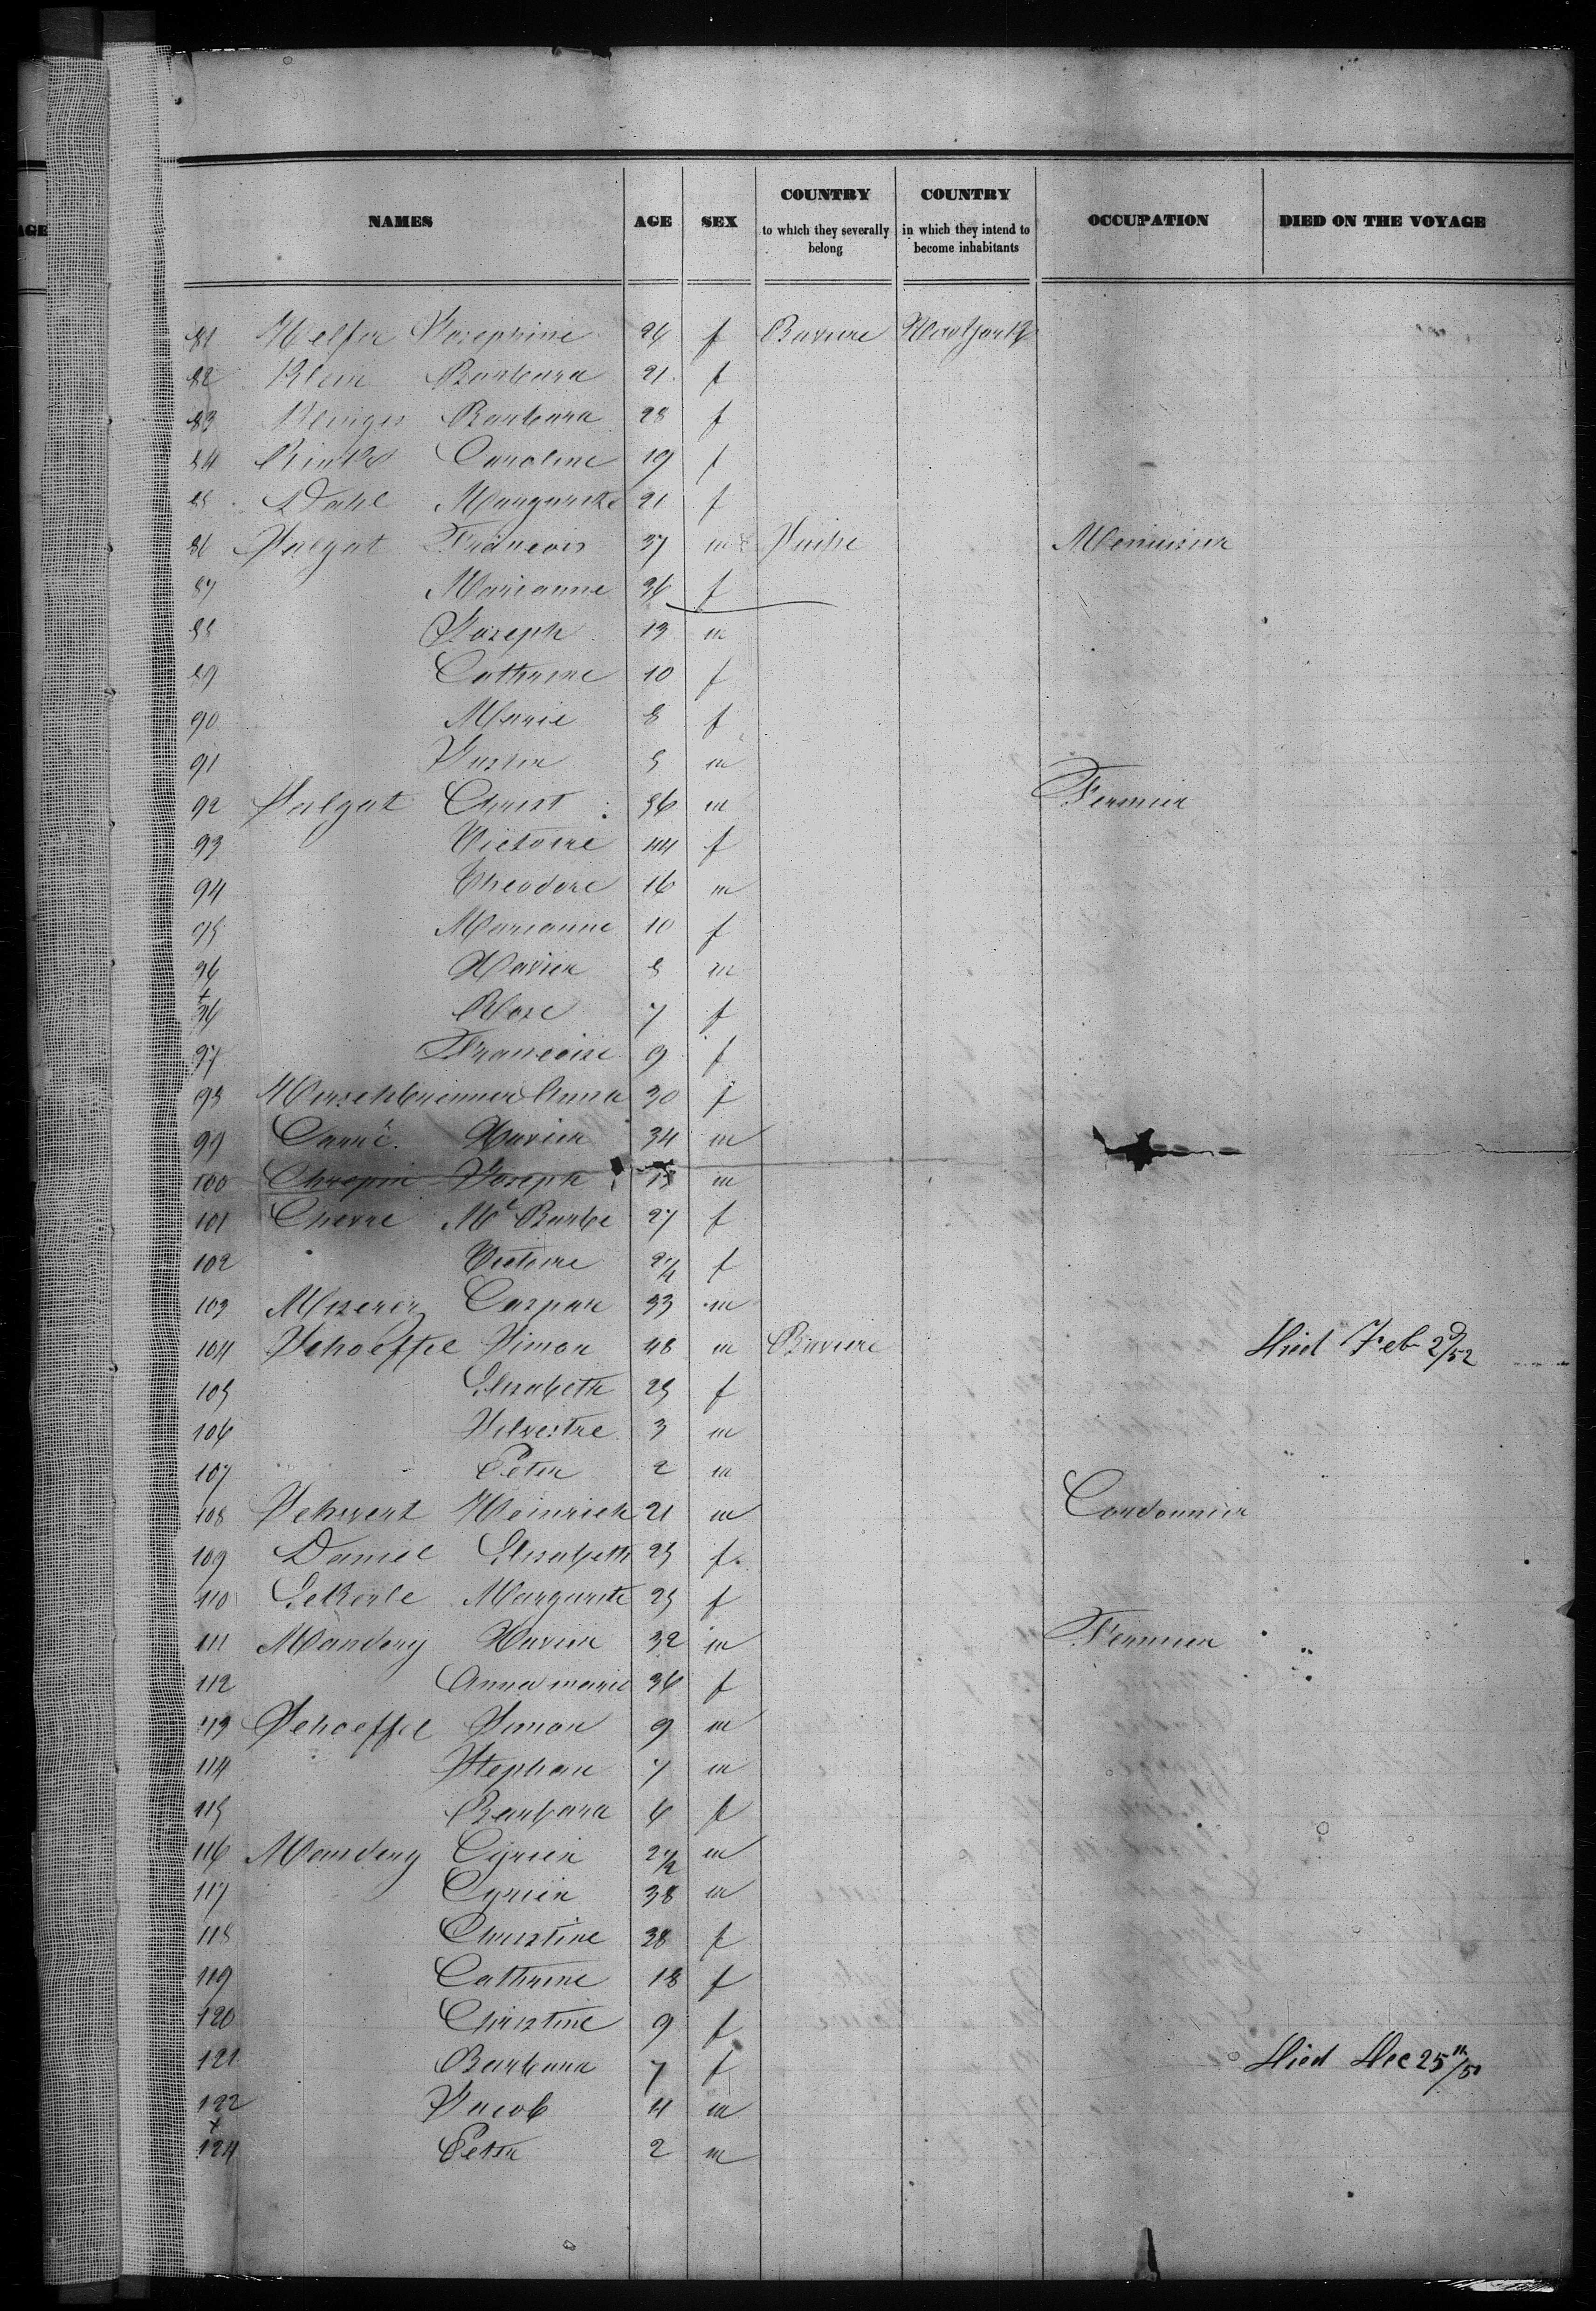 AGE
NAMES AGE SEX COUNTRY to which they severally belong COUNTRY in which they intend to become inhabitants OCCUPATION DIED ON THE VOYAGE
81 Helfer Josephine 26 f Baviere New York
82 Klein Barbara 21 f
83 Barbara 28 f
84 Caroline 19 f
85 Dahl Margarethe 21 f
86 Salgat Francois 37 m Suisse Menuisier
87 Marianne 36 f
88 Joseph 13 m
89 Catherine 10 f
90 Marie 8 f
91 Justin 5 m
92 Salgat Christ 56 m Fermier
93 Victoire 44 f
94 Theodore 16 m
95 Marianne 10 f
96 Xavier 8 m
+ 96 Rose 7 f
97 Francoise 9 f
98 Anna 30 f
99 Carré Xavier 34 m
100 Joseph 13 m
101 Chevre Me Barbe 27 f
102 Victoire f
103 Miserez Caspar 33 m
104 Schoeffel Simon 48 m Baviere Died Feb 2d/52
105 Elisabeth 25 f
106 Silvestre 3 m
107 Peter 2 m
108 Heinrich 21 m Cordonnier
109 Daniel Elisabeth 25 f
110 Eckerle Margarite 25 f
111 Mandery Xavier 32 m Fermier
112 Anna marie 36 f
113 Schoeffel Simon 9 m
114 Stephan 7 m
115 Barbara 6 f
116 Mandery Cyrien m
117 Cyrien 38 m
118 Christine 38 f
119 Catherine 18 f
120 Christine 9 f
121 Barbara 7 f Died Dec 25th/51
122 Jacob 4 m
+ 124 Peter 2 m